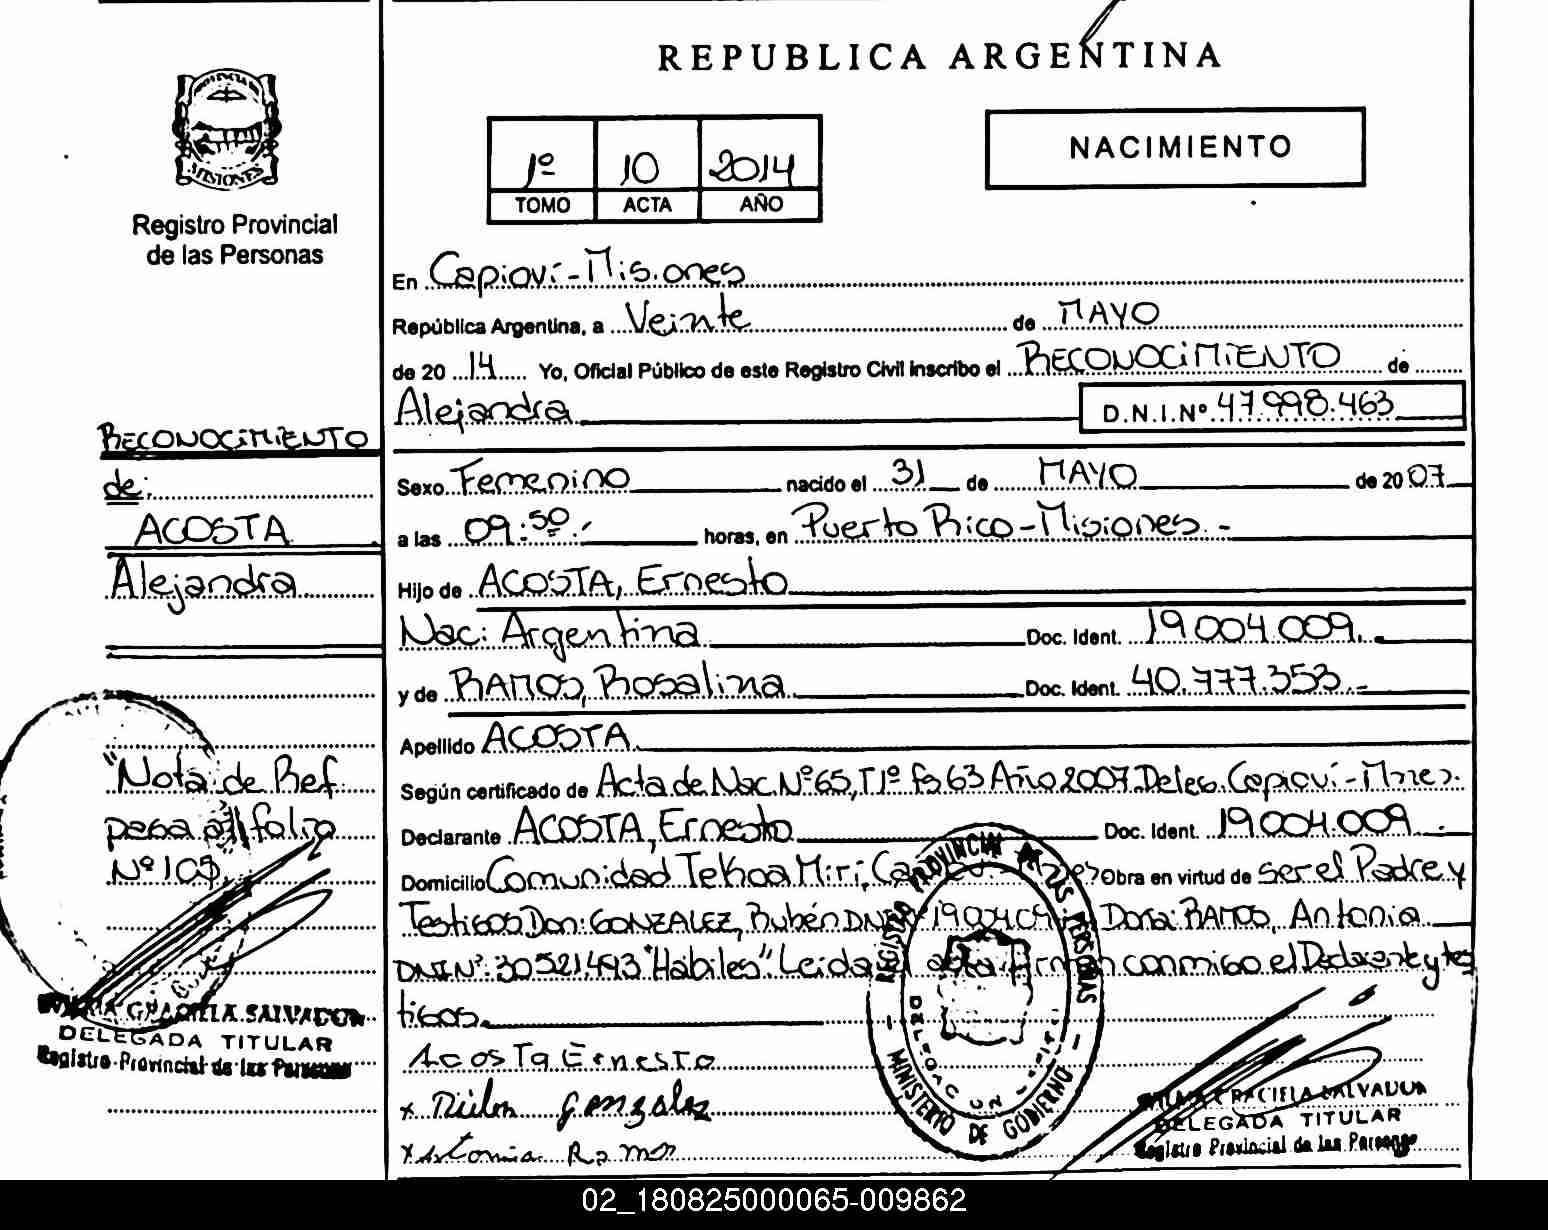 REPUBLICA ARGENTINA
PROVINCIA DE
MISIONES
Registro Provincial
de las Personas
1º 10 2014
TOMO ACTA AÑO
NACIMIENTO
En Capioví-Misiones
República Argentina, a Veinte de MAYO
de 20 14 Yo, Oficial Público de este Registro Civil inscribo el RECONOCIMIENTO de
Alejandra D.N.I.Nº 47.998.463
RECONOCIMIENTO
de:
ACOSTA
Alejandra
Sexo Femenino nacido el 31 de MAYO de 20 07
a las 09:50 horas, en Puerto Rico-Misiones.-
Hijo de ACOSTA, Ernesto
Nac: Argentina Doc. Ident. 19.004.009.
y de RAMOS, Rosalina Doc. Ident. 40.777.353.-
Apellido ACOSTA
Según certificado de Acta de Nac. Nº 65, T.1º Fº 63 Año 2007 Deleg. Capioví-Mnes.
Declarante ACOSTA, Ernesto Doc. Ident. 19.004.009.
Domicilio Comunidad Tekoa Mirí, Obra en virtud de ser el Padre y
Testigos Don: GONZALEZ, Rubén Doña: RAMOS, Antonia
DNI Nº: 30521493 "Habiles" Leida el acta Firman conmigo el Declarante y tes
tigos.
Acosta Ernesto
x Rubén Gonzalez
x Antonia Ramos
"Nota de Ref
pasa al folio
Nº 105.
GRACIELA SALVADOR
DELEGADA TITULAR
Registro Provincial de las Personas
REGISTRO PROVINCIAL DE LAS PERSONAS
MINISTERIO DE GOBIERNO
GRACIELA SALVADOR
DELEGADA TITULAR
Registro Provincial de las Personas
02_180825000065-009862